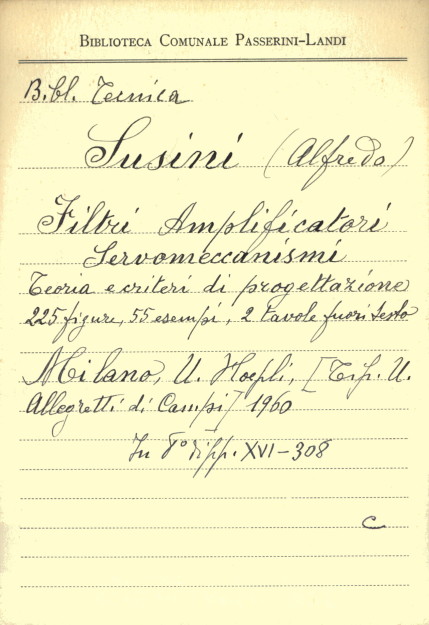 BIBLIOTECA COMUNALE PASSERINI-LANDI
Bibl. Tecnica
Susini (Alfredo)
Filtri Amplificatori
Servomeccanismi
Teoria e criteri di progettazione
225 figure, 55 esempi, 2 tavole fuori testo
Milano, U. Hoepli, [Tip. U.
Allegretti di Campi] 1960
In 8° di pp. XVI-308
C